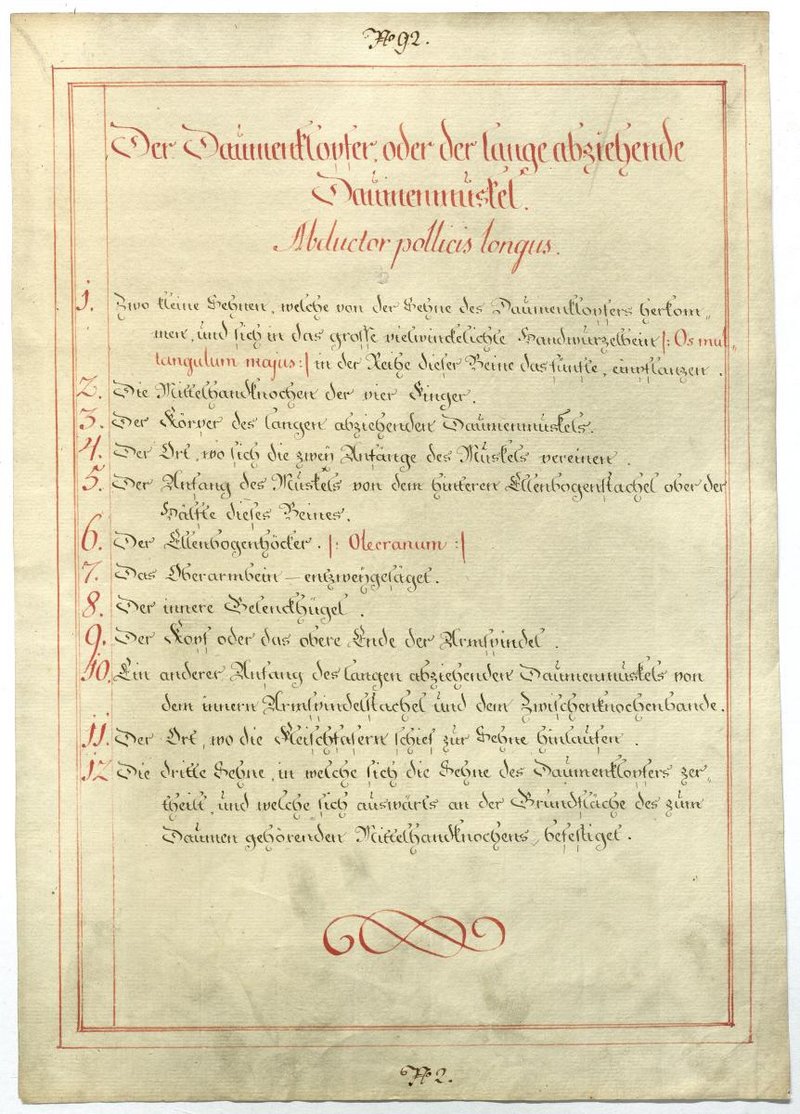 No 92.
Der Daumenklopfer, oder der lange abziehende
Daumenmuskel.
Abductor pollicis longus.
1. Zwo kleine Sehnen, welche von der Sehne des Daumenklopfers herkom„
men, und sich in das grosse vielwinckelichte Handwurzelbein |: Os mul„
tangulum majus :| in der Reihe dieser Beine das fünfte, einpflanzen.
2. Die Mittelhandknochen der vier Finger.
3. Der Körper des langen abziehenden Daumenmuskels.
4. Der Ort, wo sich die zweÿ Anfänge des Muskels vereinen.
5. Der Anfang des Muskels von dem hinteren Ellenbogenstachel ober der
Hälfte dieses Beines.
6. Der Ellenbogenhöcker. |: Olecranum :|
7. Das Oberarmbein — entzweÿgesäget.
8. Der innere Gelenckhügel.
9. Der Kopf oder das obere Ende der Armspindel.
10. Ein anderer Anfang des langen abziehenden Daumenmuskels von
dem innern Armspindelstachel und dem Zwischenknochenbande.
11. Der Ort, wo die Fleischfasern schief zur Sehne hinlaufen.
12 Die dritte Sehne, in welche sich die Sehne des Daumenklopfers zer„
theilt, und welche sich auswärts an der Grundfläche des zum
Daumen gehörenden Mittelhandknochens, befestiget.
No 2.